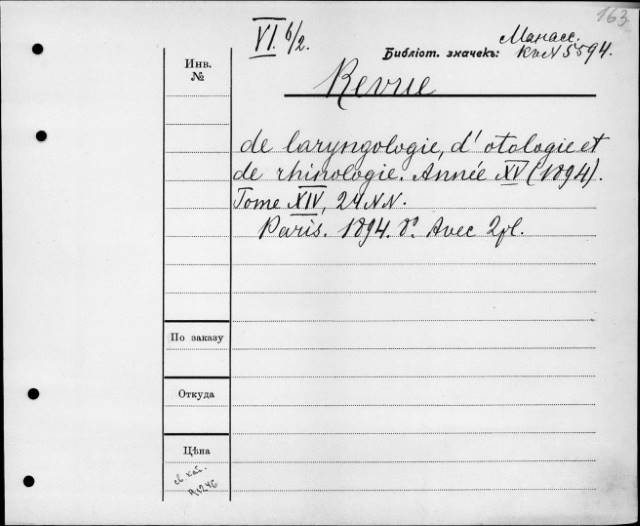 163
VI. 6/2.
Манасс.
Библіот. значекъ: Кв N 5594.
Инв. №
Revue
de laryngologie, d'otologie et
de rhinologie. Année XV (1894).
Tome XIV, 24 NN.
Paris. 1894. 8º. Avec 2 pl.
По заказу
Откуда
Цѣна